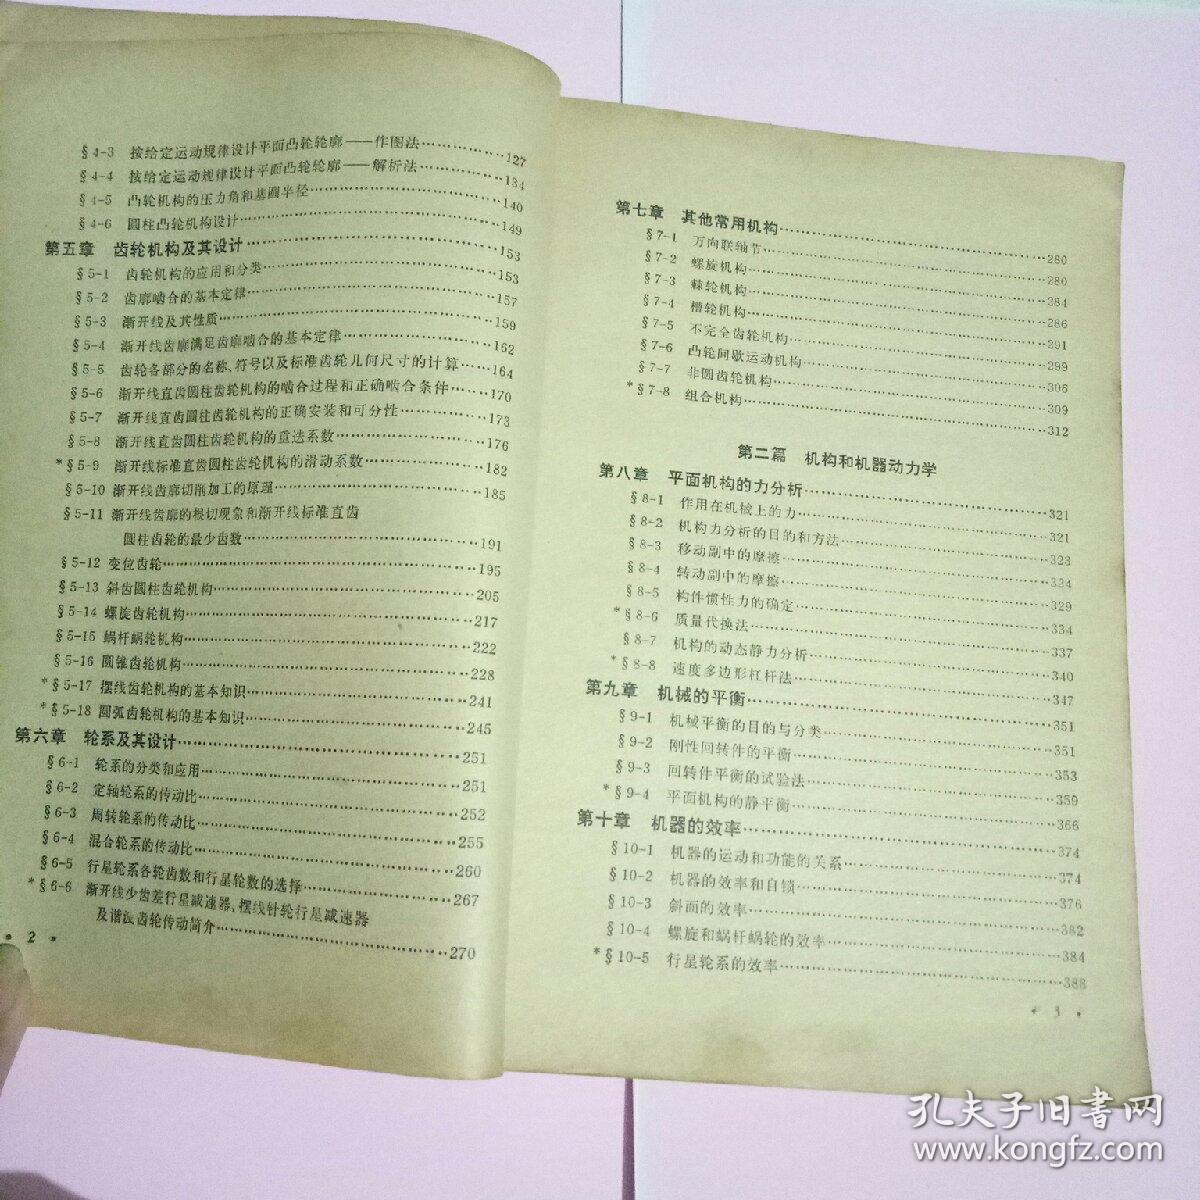 §4-3 按给定运动规律设计平面凸轮轮廓——作图法……………127
§4-4 按给定运动规律设计平面凸轮轮廓——解析法……………134
§4-5 凸轮机构的压力角和基圆半径……………140
§4-6 圆柱凸轮机构设计……………149
第五章 齿轮机构及其设计……………153
§5-1 齿轮机构的应用和分类……………153
§5-2 齿廓啮合的基本定律……………157
§5-3 渐开线及其性质……………159
§5-4 渐开线齿廓满足齿廓啮合的基本定律……………162
§5-5 齿轮各部分的名称、符号以及标准齿轮几何尺寸的计算……164
§5-6 渐开线直齿圆柱齿轮机构的啮合过程和正确啮合条件……170
§5-7 渐开线直齿圆柱齿轮机构的正确安装和可分性……………173
§5-8 渐开线直齿圆柱齿轮机构的重迭系数……………176
*§5-9 渐开线标准直齿圆柱齿轮机构的滑动系数……………182
§5-10 渐开线齿廓切削加工的原理……………185
§5-11 渐开线齿廓的根切现象和渐开线标准直齿
圆柱齿轮的最少齿数……………191
§5-12 变位齿轮……………195
§5-13 斜齿圆柱齿轮机构……………205
§5-14 螺旋齿轮机构……………217
§5-15 蜗杆蜗轮机构……………222
§5-16 圆锥齿轮机构……………228
*§5-17 摆线齿轮机构的基本知识……………241
*§5-18 圆弧齿轮机构的基本知识……………245
第六章 轮系及其设计……………251
§6-1 轮系的分类和应用……………251
§6-2 定轴轮系的传动比……………252
§6-3 周转轮系的传动比……………255
§6-4 混合轮系的传动比……………260
§6-5 行星轮系各轮齿数和行星轮数的选择……………267
*§6-6 渐开线少齿差行星减速器、摆线针轮行星减速器
及谐波齿轮传动简介……………270
• 2 •
第七章 其他常用机构……………280
§7-1 万向联轴节……………280
§7-2 螺旋机构……………284
§7-3 棘轮机构……………286
§7-4 槽轮机构……………291
§7-5 不完全齿轮机构……………299
§7-6 凸轮间歇运动机构……………306
§7-7 非圆齿轮机构……………309
*§7-8 组合机构……………312
第二篇 机构和机器动力学
第八章 平面机构的力分析……………321
§8-1 作用在机械上的力……………321
§8-2 机构力分析的目的和方法……………323
§8-3 移动副中的摩擦……………324
§8-4 转动副中的摩擦……………329
§8-5 构件惯性力的确定……………334
*§8-6 质量代换法……………337
§8-7 机构的动态静力分析……………340
*§8-8 速度多边形杠杆法……………347
第九章 机械的平衡……………351
§9-1 机械平衡的目的与分类……………351
§9-2 刚性回转件的平衡……………353
§9-3 回转件平衡的试验法……………359
*§9-4 平面机构的静平衡……………366
第十章 机器的效率……………374
§10-1 机器的运动和功能的关系……………374
§10-2 机器的效率和自锁……………376
§10-3 斜面的效率……………382
§10-4 螺旋和蜗杆蜗轮的效率……………384
*§10-5 行星轮系的效率……………388
• 3 •
孔夫子旧书网
www.kongfz.com